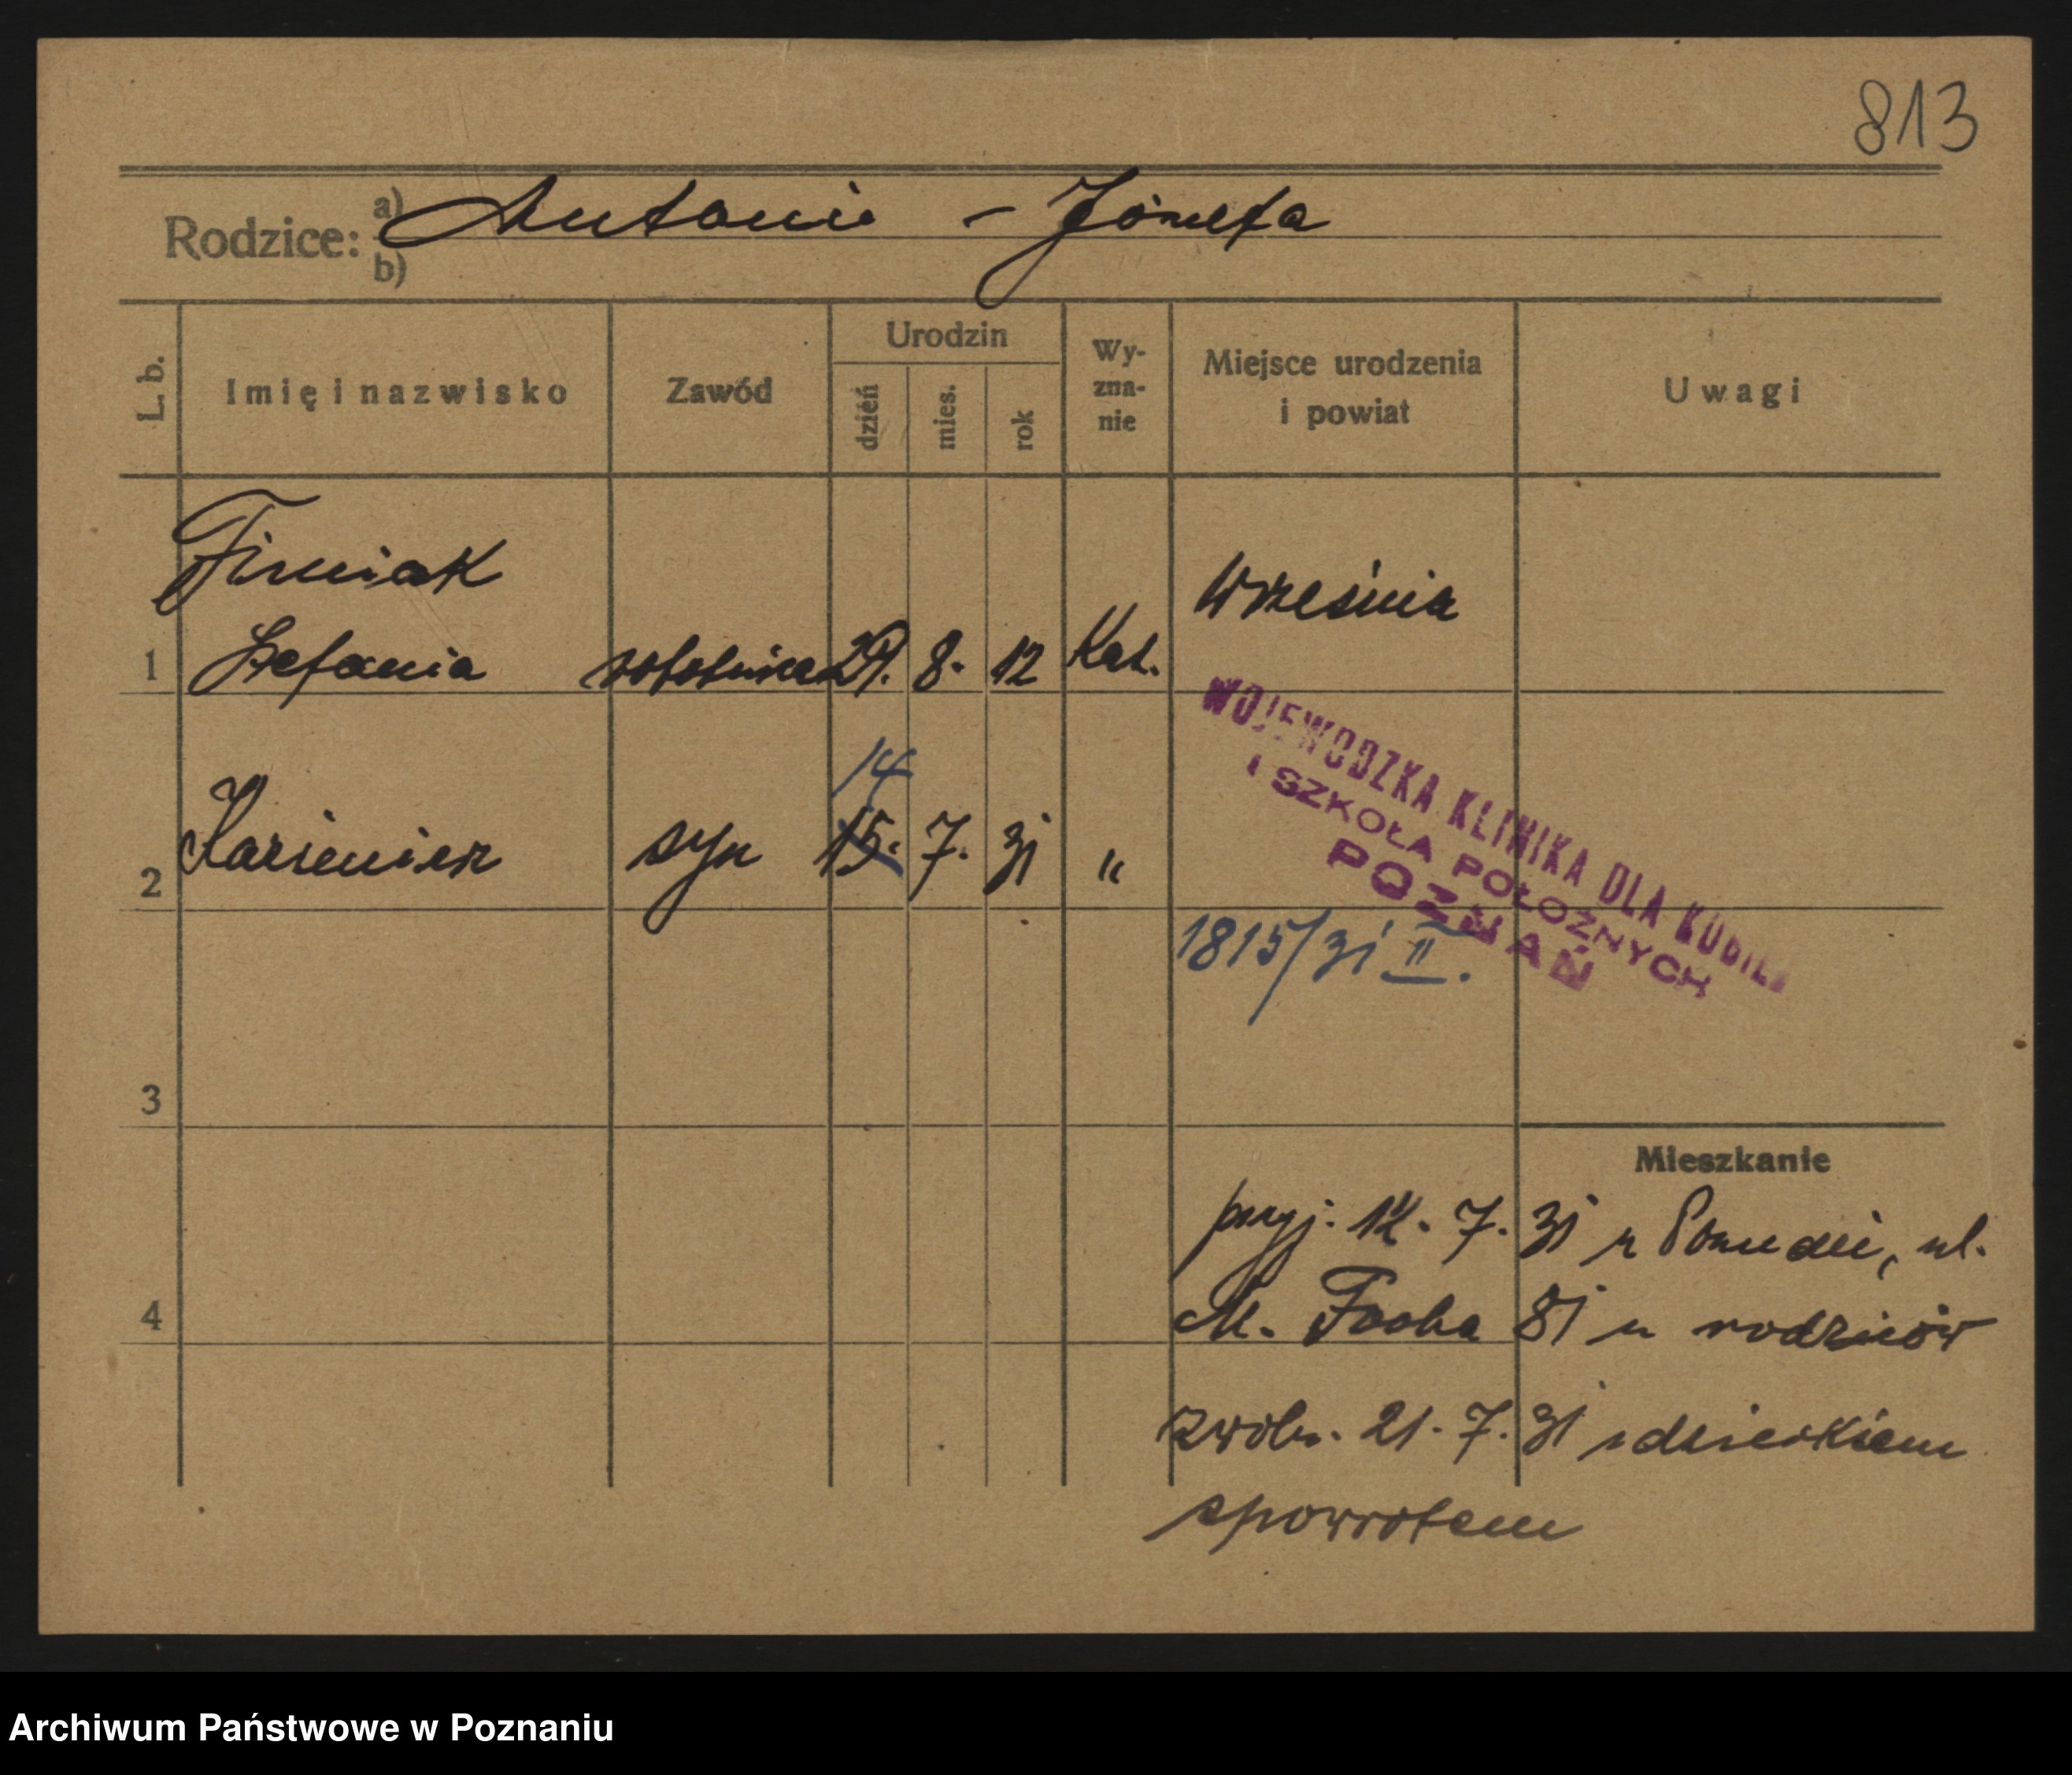 813
Rodzice: a) Antoni - Józefa
b)
L. b.
Imię i nazwisko
Zawód
Urodzin
dzień
mies.
rok
Wy-
zna-
nie
Miejsce urodzenia
i powiat
Uwagi
Firniak
Września
1 Stefania robotnica 29. 8. 12 Kat.
14
2 Kazimierz syn 15. 7. 31 "
WOJEWÓDZKA KLINIKA DLA KOBIET
I SZKOŁA POŁOŻNYCH
POZNAŃ
1815/31 II.
3
Mieszkanie
przyj. 7. 31 z ul.
4 M. Focha 81 u rodziców
zwoln. 21. 7. 31 z dzieckiem
spowrotem
Archiwum Państwowe w Poznaniu